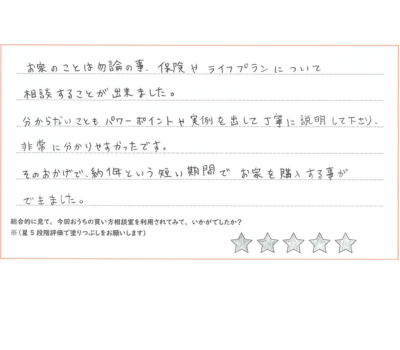 お家のことは勿論の事、保険や ライフプランについて
相談することが出来ました。
分からないことも パワーポイントや実例を出して丁寧に説明して下さり、
非常に分かりやすかったです。
そのおかげで、約1年という短い期間で お家を購入する事が
できました。
総合的に見て、今回おうちの買い方相談室を利用されてみて、いかがでしたか?
※(星5段階評価で塗りつぶしをお願いします)